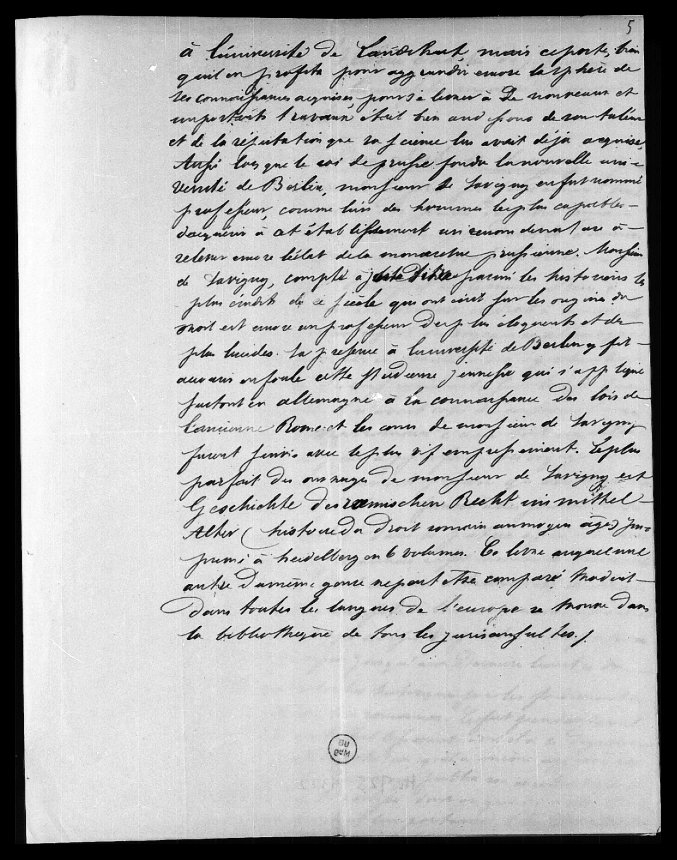 5
à l'université de Landshut, mais ce poste, bien
qu'il en profita pour aggrandir encore la sphère de
ses connaissances acquises, pour se livrer à de nouveaux et
importants travaux était bien au dessous de son talent
et de la réputation que sa science lui avait déjà acquise.
Aussi lorsque le roi de prusse fonda la nouvelle uni-
versité de Berlin, monsieur de Savigny en fut nommé
professeur, comme l'un des hommes les plus capables
d'acquérir à cet établissement un renom de nature à
relever encore l'éclat de la monarchie prussienne. Monsieur
de Savigny, compté à juste titre parmi les historiens les
plus érudits de ce siècle qui ont écrit sur les origines du
droit est encore un professeur des plus éloquents et des
plus lucides. Sa présence à l'université de Berlin y fit
accourir en foule cette studieuse jeunesse qui s'applique
surtout en allemagne à la connaissance des lois de
l'ancienne Rome et les cours de monsieur de Savigny
furent suivis avec le plus vif empressement. Le plus
parfait des ouvrages de monsieur de Savigny est
Geschichte des rœmischen Recht im mittel
Alter (histoire du droit romain au moyen âge) im-
primé à heidelberg en 6 volumes. Ce livre auquel une
autre du même genre ne peut être comparé, traduit
dans toutes les langues de l'europe se trouve dans
la bibliothèque de tous les jurisconsultes.